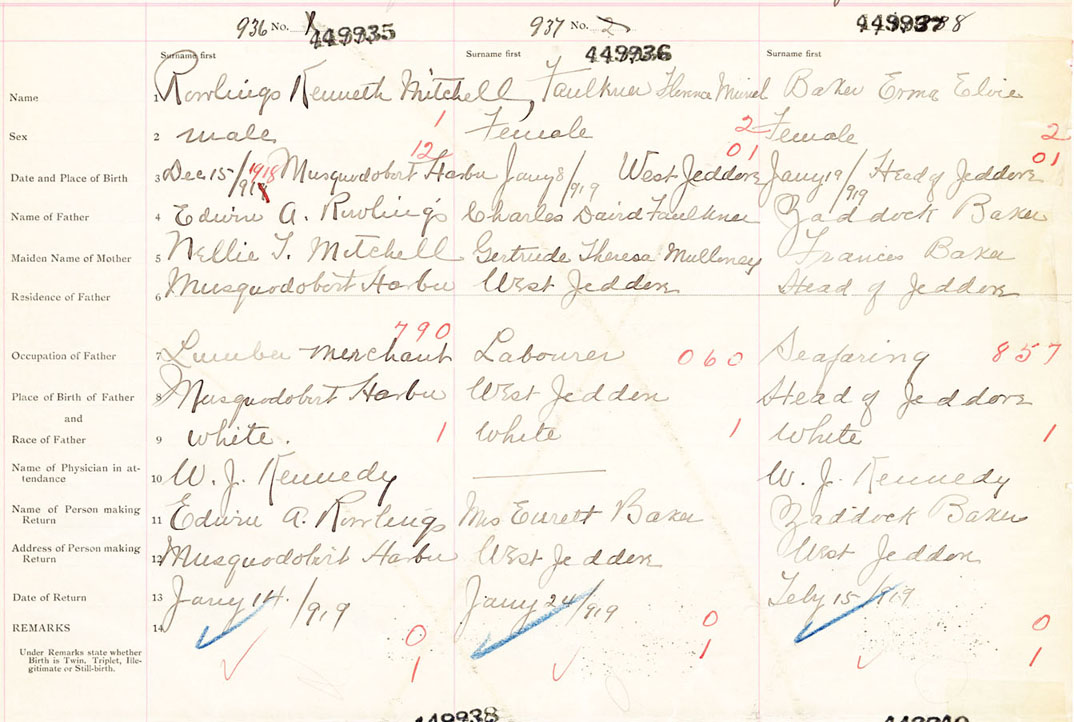 936 No. 1 449935 937 No. 2 449936 449937 88
Surname first Surname first Surname first
Name 1 Rowlings Kenneth Mitchell, Faulkner Florence Muriel Baker Erma Elvie
1 2 2
Sex 2 male Female Female
12 01 01
Date and Place of Birth 3 Dec 15/1918 Musquodobort Harbu Jany 8/919 West Jeddore Jany 19/919 Head of Jeddore
Name of Father 4 Edwin A. Rowlings Charles Daird Faulkner Zaddock Baker
Maiden Name of Mother 5 Nellie T. Mitchell Gertrude Theresa Mulloney Frances Baker
Residence of Father 6 Musquodobort Harbu West Jeddore Head of Jeddore
790
Occupation of Father 7 Lumber merchant Labourer 060 Seafaring 857
Place of Birth of Father 8 Musquodobort Harbu West Jeddore Head of Jeddore
and
Race of Father 9 white. 1 White 1 White 1
Name of Physician in at-
tendance 10 W. J. Kennedy W. J. Kennedy
Name of Person making
Return 11 Edwin A. Rowlings Mrs Everett Baker Zaddock Baker
Address of Person making
Return 12 Musquodobort Harbu West Jeddore West Jeddore
Date of Return 13 Jany 14/919 Jany 24/919 Feby 15/919
REMARKS 14 0 0 0
Under Remarks state whether
Birth is Twin, Triplet, Ille-
gitimate or Still-birth.
1 1 1
449938